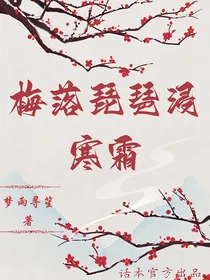 梅落琵琶浸
寒霜
梦雨寻笙
著
话本官方出品